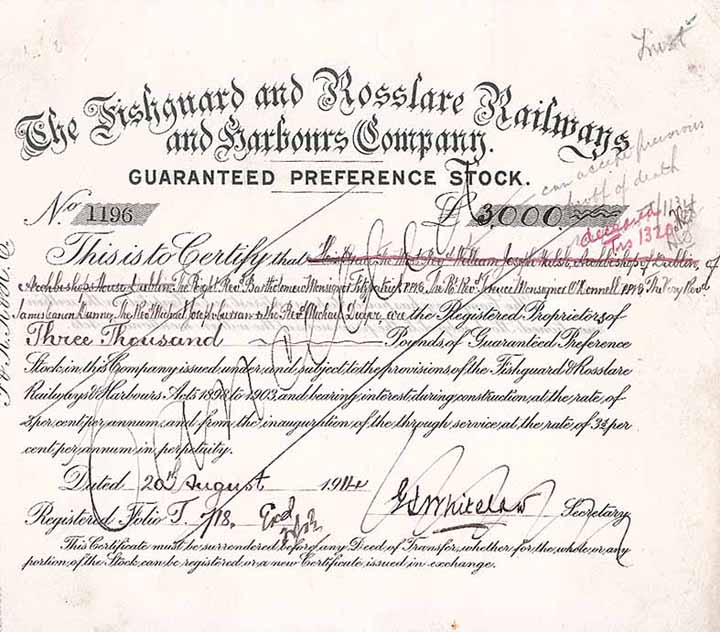 Trust
The Fishguard and Rosslare Railways
and Harbours Company.
GUARANTEED PREFERENCE STOCK.
can accept previous
proof of death
No 1196
£3,000
deceased
Trs 1320
This is to Certify that His Grace The Most Rev William Joseph Walsh, Archbishop of Dublin, of
Archbishop's House Dublin, The Right Rev Bartholomew Monsignor Fitzpatrick P.P.V.G. The Rt Rev Monsignor O'Connell P.P.V.G The Very Revd
James Canon Dunne, The Rev Michael Joseph Curran & the Rev Michael are the Registered Proprietors of
Three Thousand Pounds, of Guaranteed Preference
Stock in this Company issued under, and subject to the provisions of the Fishguard & Rosslare
Railways & Harbours Acts 1898 to 1903, and bearing interest during construction, at the rate of
per cent per annum, and from the inauguration of the through service, at the rate of 3½ per
cent per annum in perpetuity.
Cancelled
Dated 20th August 1914
Registered Folio T. 718. Exd Secretary
This Certificate must be surrendered before any Deed of Transfer, whether for the whole or any
portion of the Stock, can be registered or a new Certificate issued in exchange.